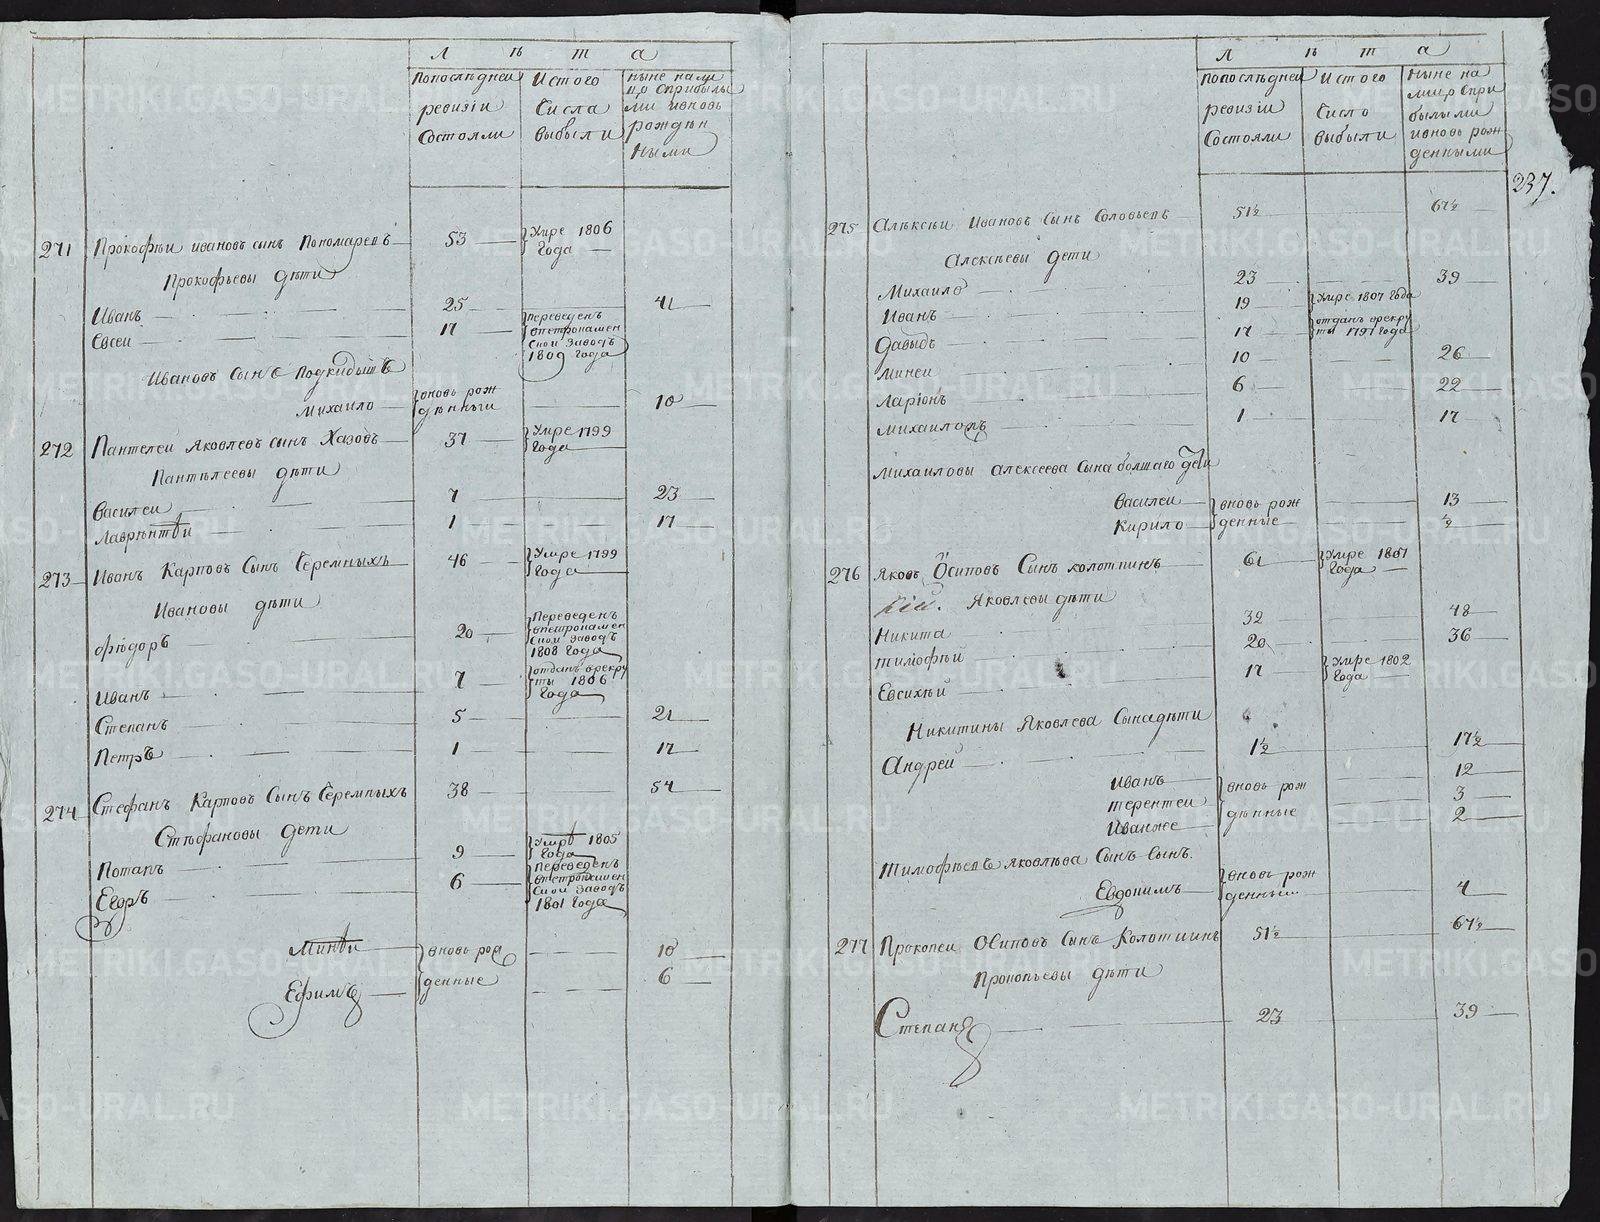 Л ѣ т а
попослѣднеи ревизіи состояли
Истого числа выбыли
ныне нали цо сприбылы ми ивновь рожден ными
271 Прокофеи ивановъ сынъ Пономаревъ 53 Умре 1806 года
Прокофьевы дѣти
Иванъ 25 41
Евсеи 17 переведенъ впетрокамен скои заводъ 1809 года
Ивановъ сынъ подкидышъ
Михаило вновь рож дѣнныи 10
272 Пантелеи Яковлевъ сынъ Хазовъ 37 Умре 1799 года
Пантѣлеевы дѣти
Василеи 7 23
Лаврѣнтѣи 1 17
273 Иванъ Карповъ Сынъ Черемныхъ 46 Умре 1799 года
Ивановы дѣти
фѣдоръ 20 Переведенъ впетрокамен скои заводъ 1808 года
Иванъ 7 отданъ врекру ты 1806 года
Степанъ 5 21
Петръ 1 17
274 Стефанъ Карповъ Сынъ Черемныхъ 38 54
Стѣфановы дети
Потапъ 9 Умрѣ 1805 года
Егоръ 6 переведенъ впетрокамен скои заводъ 1801 года
Минѣи вновь рож 10
Ефимъ денные 6
Л ѣ т а
попослѣднеи ревизіи состояли
Истого числа выбыли
ныне на лицо спри былыми ивновь рож денными
237.
275 Алѣксѣи Ивановъ Сынъ Соловьевъ 51½ 67½
Алексеевы дети
Михаило 23 39
Иванъ 19 Умре 1807 года
Давыдъ 17 отданъ врекру ты 1797 года
Минеи 10 26
Ларіонъ 6 22
Михаило 1 17
Михаиловы Алексеева Сына болшаго дети
Василеи вновь рож 13
Кирило денные ½
276 Яковъ Осиповъ Сынъ колотнинъ 61 Умре 1801 года
Яковлевы дѣти
Никита 32 48
тимофѣй 20 36
Евсихѣй 17 Умре 1802 года
Никитины Яковлева Сына дѣти
Андрей 1½ 17½
Иванъ 12
терентеи вновь рож дѣнные 3
Иванже 2
Тимофѣевъ яковлѣва Сынъ Сынъ.
Евдокимъ вновь рож денныи 4
277 Прокопеи Осиповъ Сынъ Колотнинъ 51½ 67½
Прокопьевы дѣти
Степанъ 23 39
METRIKI.GASO-URAL.RU